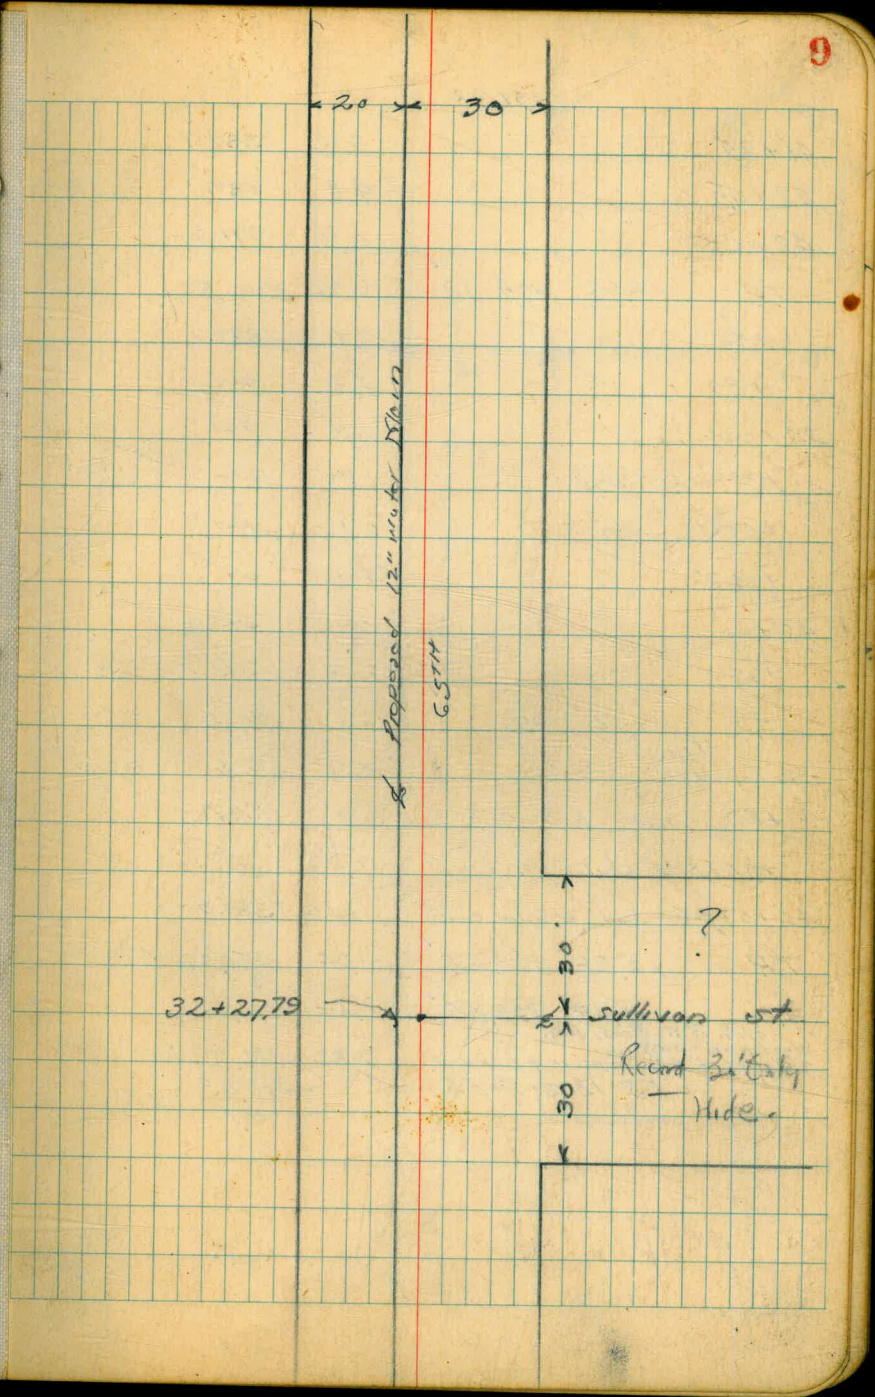 9
20 30
℄ Proposed 12" Water Main
65TH
?
30'
32+27.79
℄ Sullivan St
Record 30' Only
30